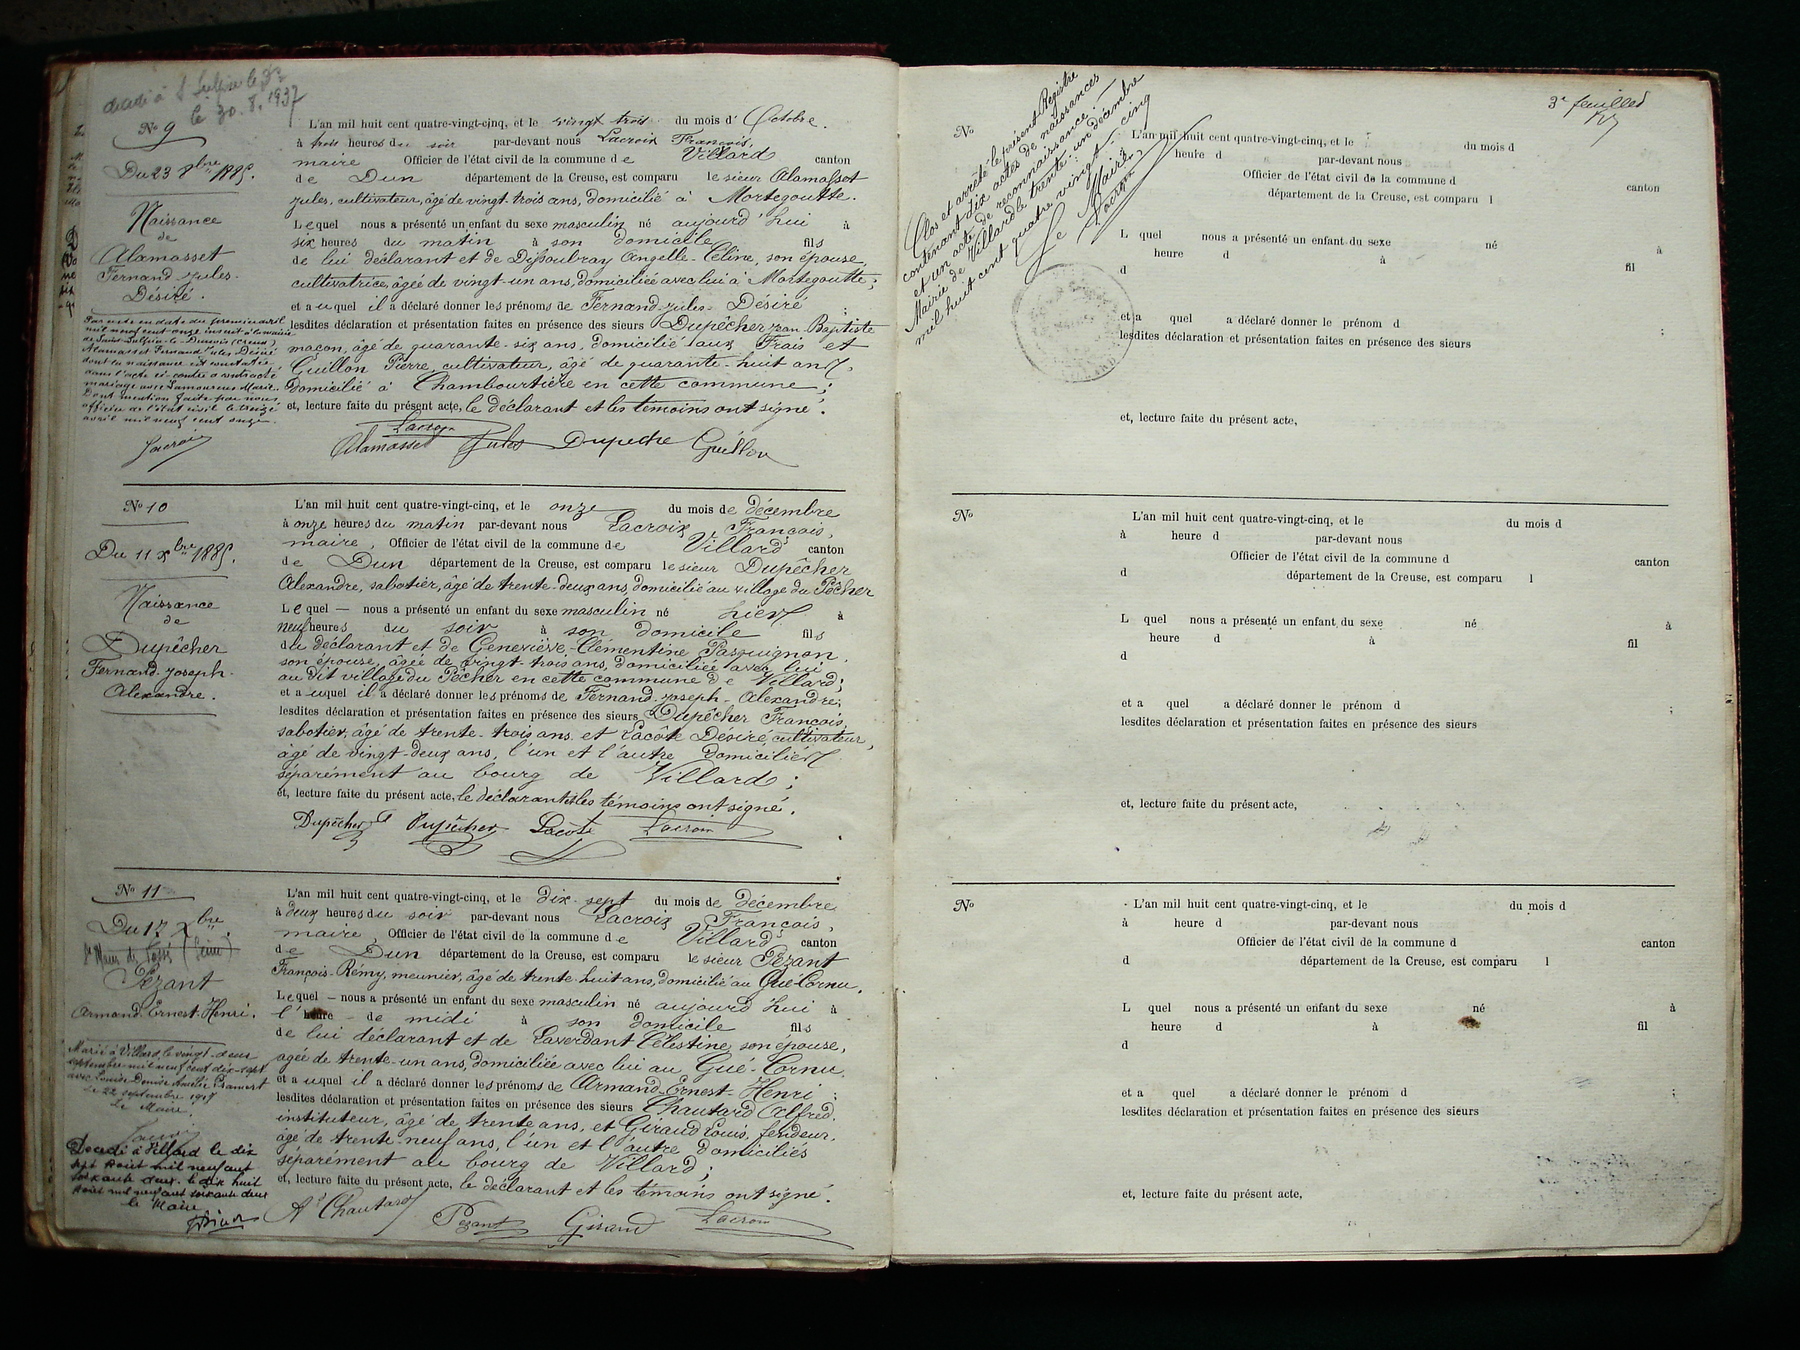 décédé à St Sulpice le Dois
le 30.8.1937
No 9
Du 23 8bre 1885.
Naissance
de
Alamasset
Fernand-Jules-
Désiré.
Par acte en date du premier avril
mil neuf cent onze inscrit à la mairie
de Saint-Sulpice-le-Dunois (Creuse)
Alamasset Fernand Jules Désiré
dont la naissance est constatée
dans l'acte ci-contre a contracté
mariage avec Lamoureux Marie.
Dont mention faite par nous
officier de l'état civil le treize
avril mil neuf cent onze.
Lacroix
L'an mil huit cent quatre-vingt-cinq, et le vingt trois du mois d'Octobre.
à trois heures du soir par-devant nous Lacroix François,
maire Officier de l'état civil de la commune de Villard canton
de Dun département de la Creuse, est comparu le sieur Alamasset
Jules, cultivateur, âgé de vingt-trois ans, domicilié à Mortegoutte.
Lequel nous a présenté un enfant du sexe masculin né aujourd'hui à
six heures du matin à son domicile fils
de lui déclarant et de Angelle-Céline, son épouse,
cultivatrice, âgée de vingt-un ans, domiciliée avec lui à Mortegoutte;
et auquel il a déclaré donner les prénoms de Fernand-Jules-Désiré ;
lesdites déclaration et présentation faites en présence des sieurs Dupêcher Jean-Baptiste
maçon, âgé de quarante-six ans, domicilié aux Frais et
Guillon Pierre, cultivateur, âgé de quarante-huit ans,
domicilié à Chambourtière en cette commune;
et, lecture faite du présent acte, le déclarant et les témoins ont signé.
Lacroix
Alamasset Jules Dupeche Guillon
No 10
Du 11 Xbre 1885.
Naissance
de
Dupêcher
Fernand-Joseph-
Alexandre.
L'an mil huit cent quatre-vingt-cinq, et le onze du mois de décembre
à onze heures du matin par-devant nous Lacroix François,
maire, Officier de l'état civil de la commune de Villard canton
de Dun département de la Creuse, est comparu le sieur Dupêcher
Alexandre, sabotier, âgé de trente-deux ans, domicilié au village du Pêcher
Lequel — nous a présenté un enfant du sexe masculin né hier à
neuf heures du soir à son domicile fils
du déclarant et de Geneviève-Clémentine Pasquignon,
son épouse, âgée de vingt-trois ans, domiciliée avec lui
au dit village du Pêcher en cette commune de Villard;
et auquel il a déclaré donner les prénoms de Fernand-Joseph-Alexandre;
lesdites déclaration et présentation faites en présence des sieurs Dupêcher François,
sabotier, âgé de trente-trois ans et Lacôte Désiré, cultivateur,
âgé de vingt-deux ans, l'un et l'autre domiciliés
séparément au bourg de Villard;
et, lecture faite du présent acte, le déclarant et les témoins ont signé.
Dupêcher A Dupêcher Lacôte Lacroix
No 11
Du 17 Xbre
Pezant
Armand-Ernest-Henri.
Marié à Villard, le vingt-deux
septembre mil neuf cent dix-sept
avec Louise Denise Amélie
Le 22 septembre 1917
Le Maire.
Décédé à Villard le dix
sept Août mil neuf cent
soixante deux. le dix huit
Août mil neuf cent soixante deux
le Maire
L'an mil huit cent quatre-vingt-cinq, et le dix-sept du mois de décembre
à deux heures du soir par-devant nous Lacroix François,
maire, Officier de l'état civil de la commune de Villard canton
de Dun département de la Creuse, est comparu le sieur Pezant
François-Rémy, meunier, âgé de trente-huit ans, domicilié au Gué-Cornu.
Lequel — nous a présenté un enfant du sexe masculin né aujourd'hui à
l'heure de midi à son domicile fils
de lui déclarant et de Laverdant Célestine, son épouse,
âgée de trente-un ans, domiciliée avec lui au Gué-Cornu.
et auquel il a déclaré donner les prénoms de Armand-Ernest-Henri ;
lesdites déclaration et présentation faites en présence des sieurs Chautard Alfred,
instituteur, âgé de trente ans, et Giraud Louis, fendeur,
âgé de trente-neuf ans, l'un et l'autre domiciliés
séparément au bourg de Villard;
et, lecture faite du présent acte, le déclarant et les témoins ont signé.
Ad Chautard Pezant Giraud Lacroix
3e feuillet
Clos et arrêté le présent Registre
contenant dix actes de naissances
et un acte de reconnaissance
Mairie de Villard le trente-un décembre
mil huit cent quatre vingt-cinq
Le Maire,
Lacroix
No
L'an mil huit cent quatre-vingt-cinq, et le du mois d
heure d par-devant nous
Officier de l'état civil de la commune d canton
département de la Creuse, est comparu l
L quel nous a présenté un enfant du sexe né à
heure d à fil
d
et a quel a déclaré donner le prénom d ;
lesdites déclaration et présentation faites en présence des sieurs
et, lecture faite du présent acte,
No
L'an mil huit cent quatre-vingt-cinq, et le du mois d
à heure d par-devant nous
Officier de l'état civil de la commune d canton
d département de la Creuse, est comparu l
L quel nous a présenté un enfant du sexe né à
heure d à fil
d
et a quel a déclaré donner le prénom d ;
lesdites déclaration et présentation faites en présence des sieurs
et, lecture faite du présent acte,
No
L'an mil huit cent quatre-vingt-cinq, et le du mois d
à heure d par-devant nous
Officier de l'état civil de la commune d canton
d département de la Creuse, est comparu l
L quel nous a présenté un enfant du sexe né à
heure d à fil
d
et a quel a déclaré donner le prénom d ;
lesdites déclaration et présentation faites en présence des sieurs
et, lecture faite du présent acte,